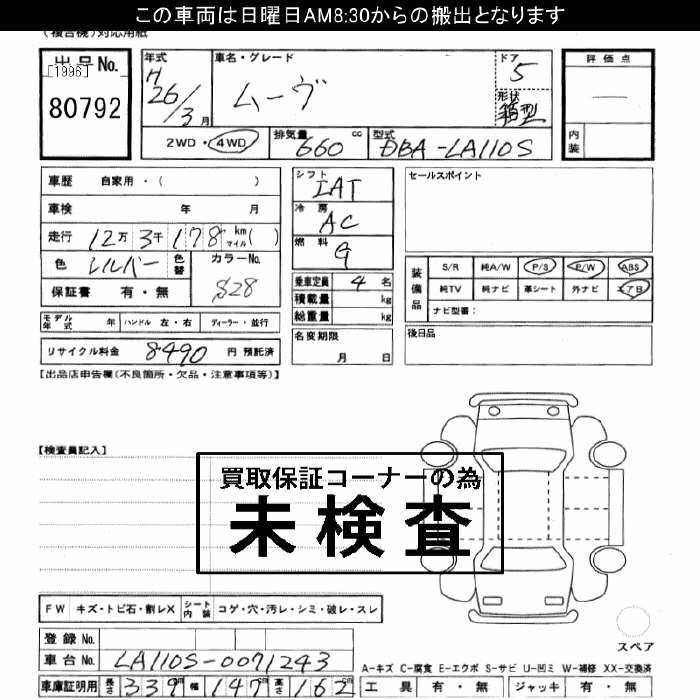 この車両は日曜日AM8:30からの搬出となります
(複合機)対応用紙
出品No.
[1996]
80792
年式 H26/3月
車名・グレード ムーヴ
ドア 5
形状 箱型
評価点 —
内装
2WD・4WD
排気量 660 cc
型式 DBA-LA110S
車歴 自家用・( )
車検 年 月
走行 12万3千178 km マイル( )
色 シルバー 色替
カラーNo. S28
保証書 有・無
シフト IAT
冷房 AC
燃料 G
乗車定員 4名
積載量 kg
総重量 kg
セールスポイント
装備品
S/R 純A/W P/S P/W ABS
純TV 純ナビ 革シート 外ナビ エアB
ナビ型番:
モデル年式 年 ハンドル 左・右 ディーラー・並行
リサイクル料金 8490 円 預託済
名変期限 月 日
後日品
【出品店申告欄(不良箇所・欠品・注意事項等)】
【検査員記入】
買取保証コーナーの為
未検査
FW キズ・トビ石・割レX シート内装 コゲ・穴・汚レ・シミ・破レ・スレ
登録No.
車台No. LA110S-0071243
スペア
A-キズ C-腐食 E-エクボ S-サビ U-凹ミ W-補修 XX-交換済
車庫証明用 長さ 339cm 幅 147cm 高さ 162cm
工具 有・無 ジャッキ 有・無